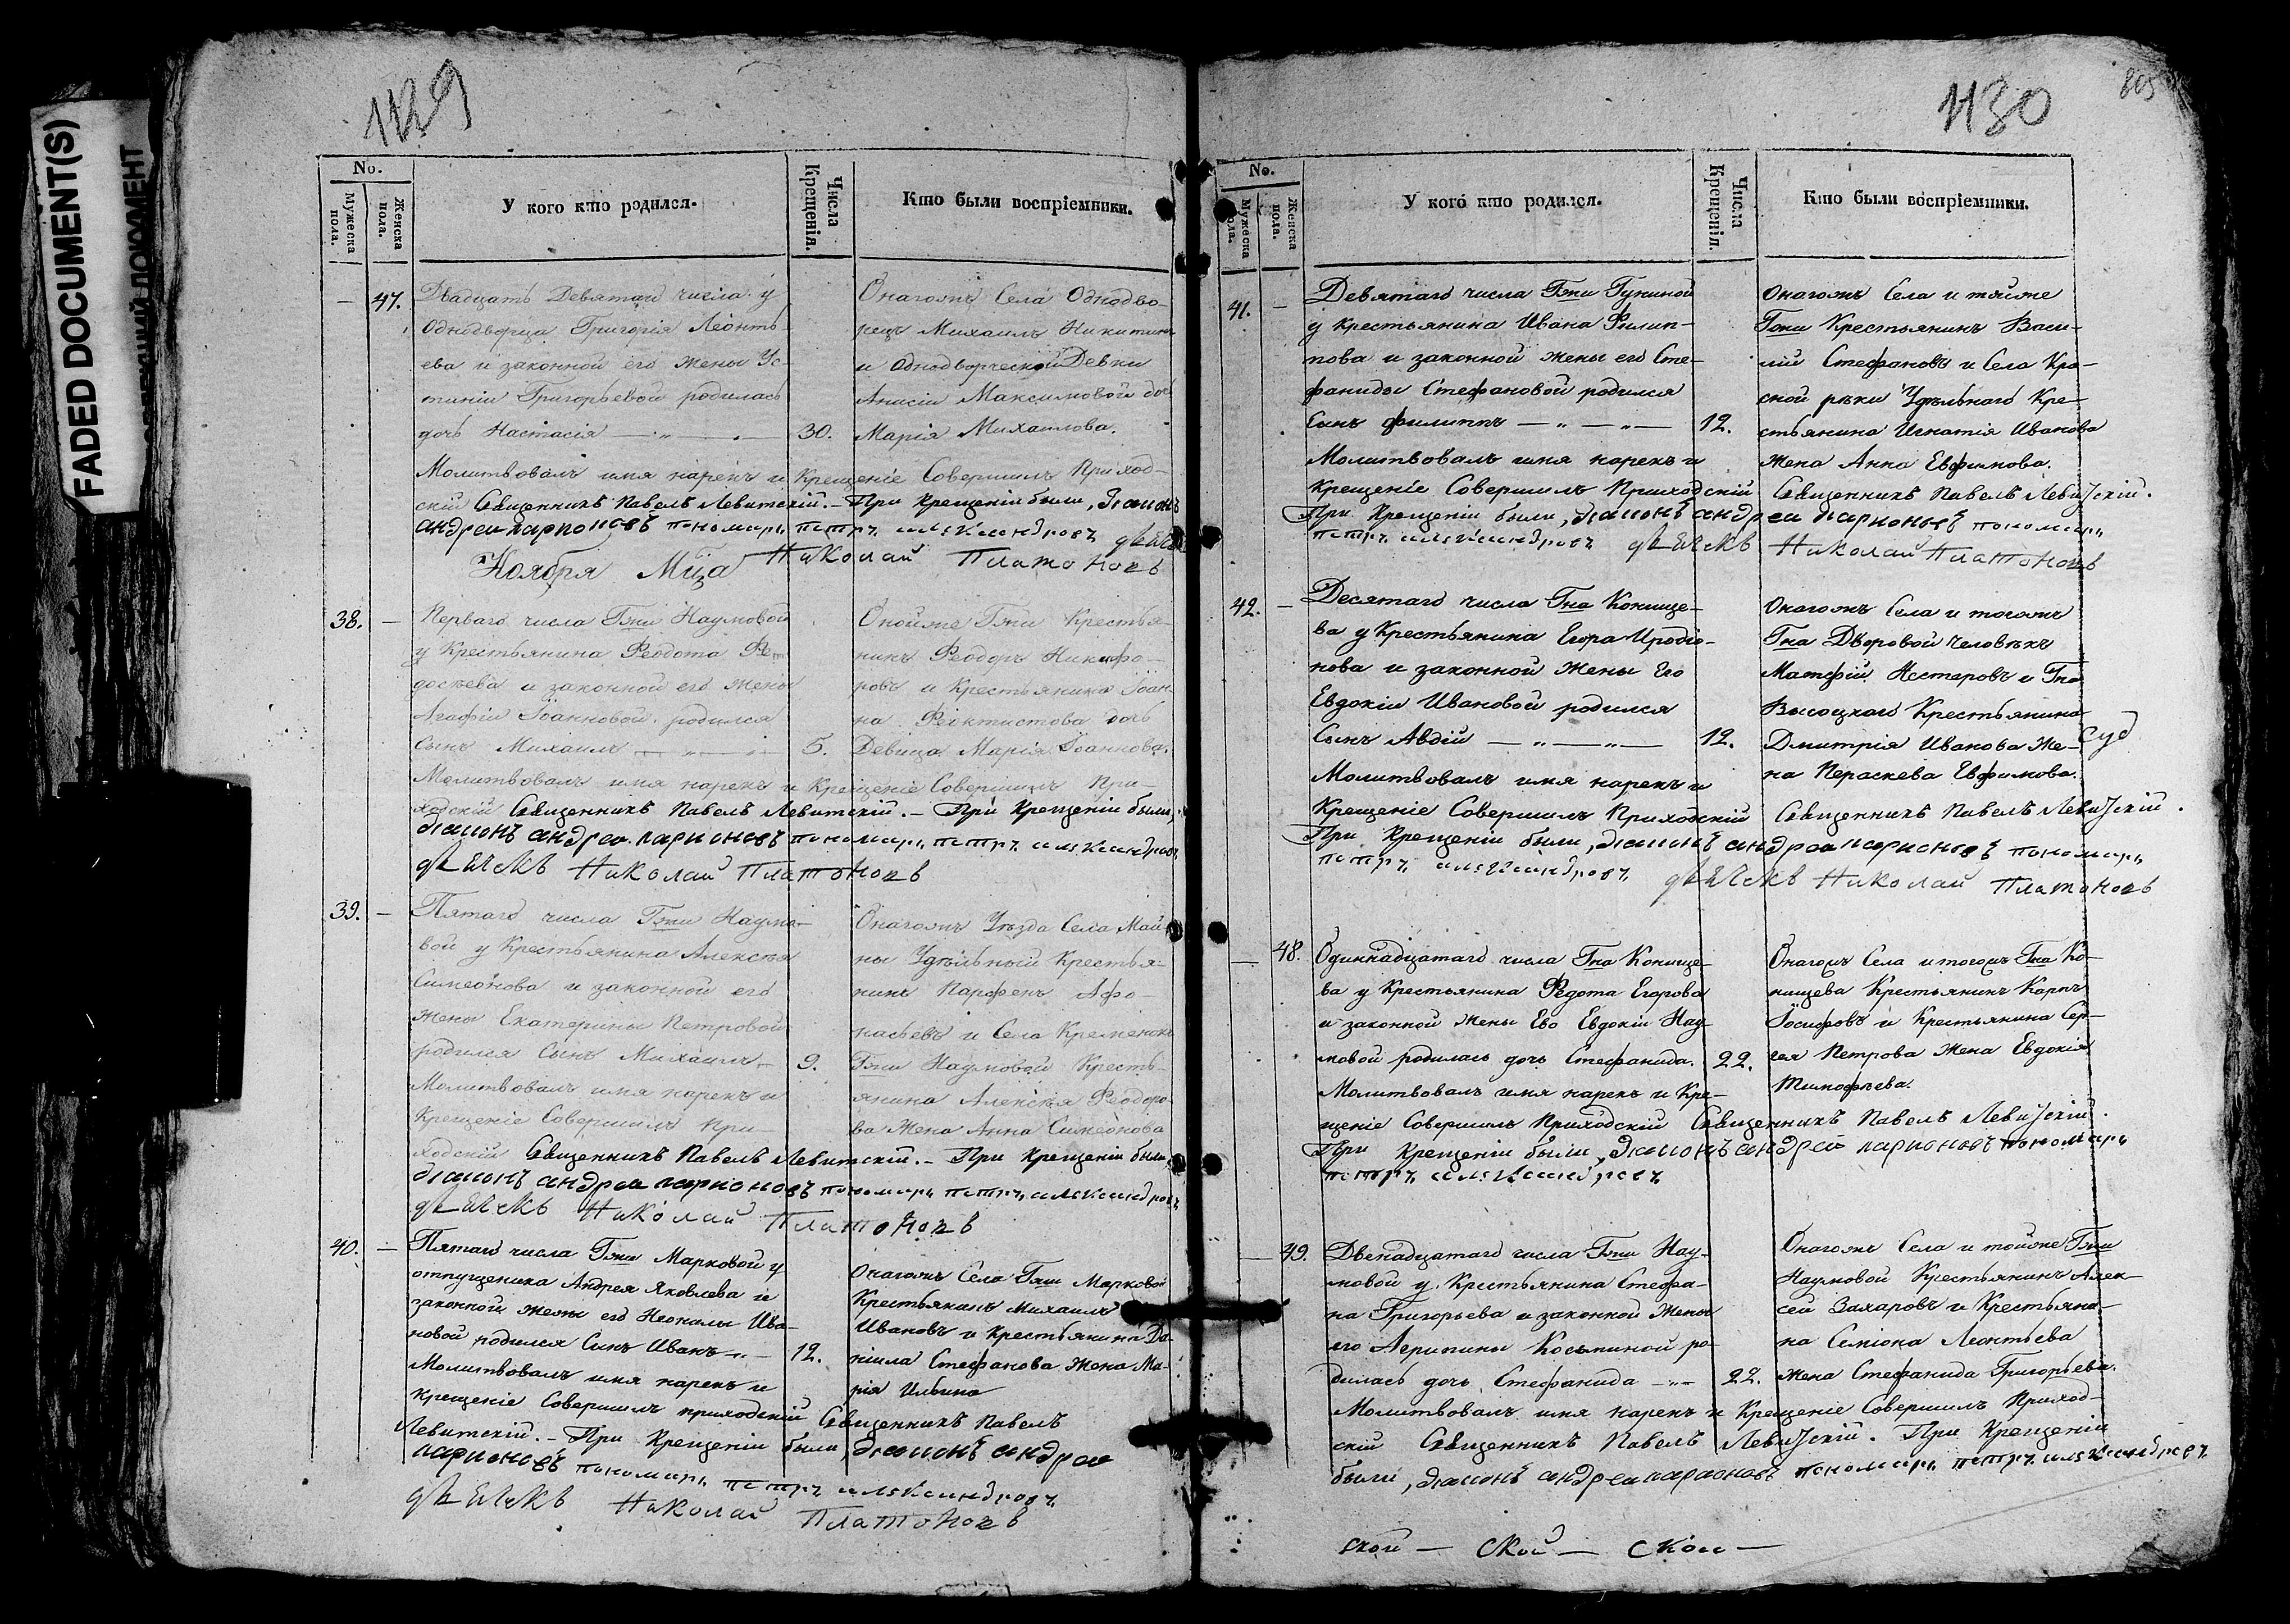 FADED DOCUMENT(S)
1129
No.
Мужеска пола.
Женска пола.
У кого кто родился.
Числа Крещенія.
Кто были воспріемники.
47.
Двадцать Девятаго числа у
Однодворца Григорія Леонть-
ева и законной его жены Ус-
тиніи Григорьевой родилась
дочь Настасія
30.
Онагожъ Села Однодво-
рецъ Михаилъ Никитинъ
и Однодворческой Девки
Анисіи Максимовой дочь
Марія Михаилова.
Молитвовалъ имя нарекъ и Крещеніе Совершилъ Приход-
скій Священникъ Павелъ Левитскій. – При Крещеніи были, Діаконъ
андреи ларионовъ пономарь петръ александровъ дьячекъ
Николай Платоновъ
Ноября Мца
38. —
Перваго числа Гжи Наумовой
у Крестьянина Ѳеодота Ѳе-
досѣева и законной его жены
Агафіи Іоанновой родился
Сынъ Михаилъ
5.
Онойже Гжи Крестья-
нинъ Ѳеодоръ Никифо-
ровъ и Крестьянина Іоан-
на Ѳеоктистова дочь
Девица Марія Іоаннова.
Молитвовалъ имя нарекъ и Крещеніе Совершилъ При-
ходскій Священникъ Павелъ Левитскій. – При Крещеніи были,
діаконъ андреи ларионовъ пономарь петръ александровъ
дьячекъ Николай Платоновъ
39. —
Пятаго числа Гжи Наумо-
вой у Крестьянина Алексѣя
Симеонова и законной его
жены Екатерины Петровой
родился Сынъ Михаилъ
9.
Молитвовалъ имя нарекъ и
Крещеніе Совершилъ При-
Онагожъ Уѣзда Села Май-
ны Удѣльный Крестья-
нинъ Парфенъ Афо-
насьевъ и Села Кременокъ
Гжи Наумовой Кресть-
янина Алексѣя Ѳеодоро-
ва Жена Анна Симеонова
ходскій Священникъ Павелъ Левитскій. – При Крещеніи были,
діаконъ андреи ларионовъ пономарь петръ александровъ
дьячекъ Николай Платоновъ
40. —
Пятаго числа Гжи Марковой у
отпущеника Андрея Яковлева и
законной жены его Неонилы Ива-
новой родился Сынъ Иванъ
12.
Онагожъ Села Гжи Марковой
Крестьянинъ Михаилъ
Ивановъ и Крестьянина Да-
ніила Стефанова Жена Ма-
рія Ильина
Молитвовалъ имя нарекъ и
Крещеніе Совершилъ приходскій Священникъ Павелъ
Левитскій. – При Крещеніи были, діаконъ андреи
ларионовъ пономарь петръ александровъ
дьячекъ Николай Платоновъ
1130
805
No.
Мужеска пола.
Женска пола.
У кого кто родился.
Числа Крещенія.
Кто были воспріемники.
41. —
Девятаго числа Гжи
у крестьянина Ивана Филип-
пова и законной жены его Сте-
фаниды Стефановой родился
Сынъ Филиппъ
12.
Онагожъ Села и тойже
Гжи Крестьянинъ Васи-
лій Стефановъ и Села Кра-
сной рѣки Удѣльнаго Кре-
стьянина Игнатія Иванова
Жена Анна Евфимова.
Молитвовалъ имя нарекъ и
Крещеніе Совершилъ Приходскій Священникъ Павелъ Левитскій.
При Крещеніи были, діаконъ андреи ларионовъ пономарь
петръ александровъ дьячекъ Николай Платоновъ
42. —
Десятаго числа Гна Конище-
ва у Крестьянина Егора Иродіо-
нова и законной Жены Его
Евдокіи Ивановой родился
Сынъ Авдій
12.
Онагожъ Села и тогожъ
Гна Дворовой человѣкъ
Матфій Нестеровъ и Гна
Высоцкаго Крестьянина
Дмитрія Иванова Же-
на Пераскева Евфимова.
Молитвовалъ имя нарекъ и
Крещеніе Совершилъ Приходскій Священникъ Павелъ Левитскій.
При Крещеніи были, діаконъ андреи ларионовъ пономарь
петръ александровъ дьячекъ Николай Платоновъ
— 48.
Одиннадцатаго числа Гна Конище-
ва у Крестьянина Ѳедота Егорова
и законной Жены Ево Евдокіи Нау-
мовой родилась дочь Стефанида.
22.
Онагожъ Села и тогожъ Гна Ко-
нищева Крестьянинъ Карпъ
Іосифовъ и Крестьянина Сер-
гея Петрова Жена Евдокія
Тимофѣева.
Молитвовалъ имя нарекъ и Кре-
щеніе Совершилъ Приходскій Священникъ Павелъ Левитскій.
При Крещеніи были, діаконъ андреи ларионовъ пономарь
петръ александровъ
— 49.
Двенадцатаго числа Гжи Нау-
мовой у Крестьянина Стефа-
на Григорьева и законной Жены
его Агрипины Косьминой ро-
дилась дочь Стефанида
22.
Онагожъ Села и тойже Гжи
Наумовой Крестьянинъ Алек-
сей Захаровъ и Крестьяни-
на Симіона Леонтьева
Жена Стефанида Григорьева.
Молитвовалъ имя нарекъ и Крещеніе Совершилъ Приход-
скій Священникъ Павелъ Левитскій. При Крещеніи
были, діаконъ андреи ларионовъ пономарь петръ александровъ
ской — ской — ской —